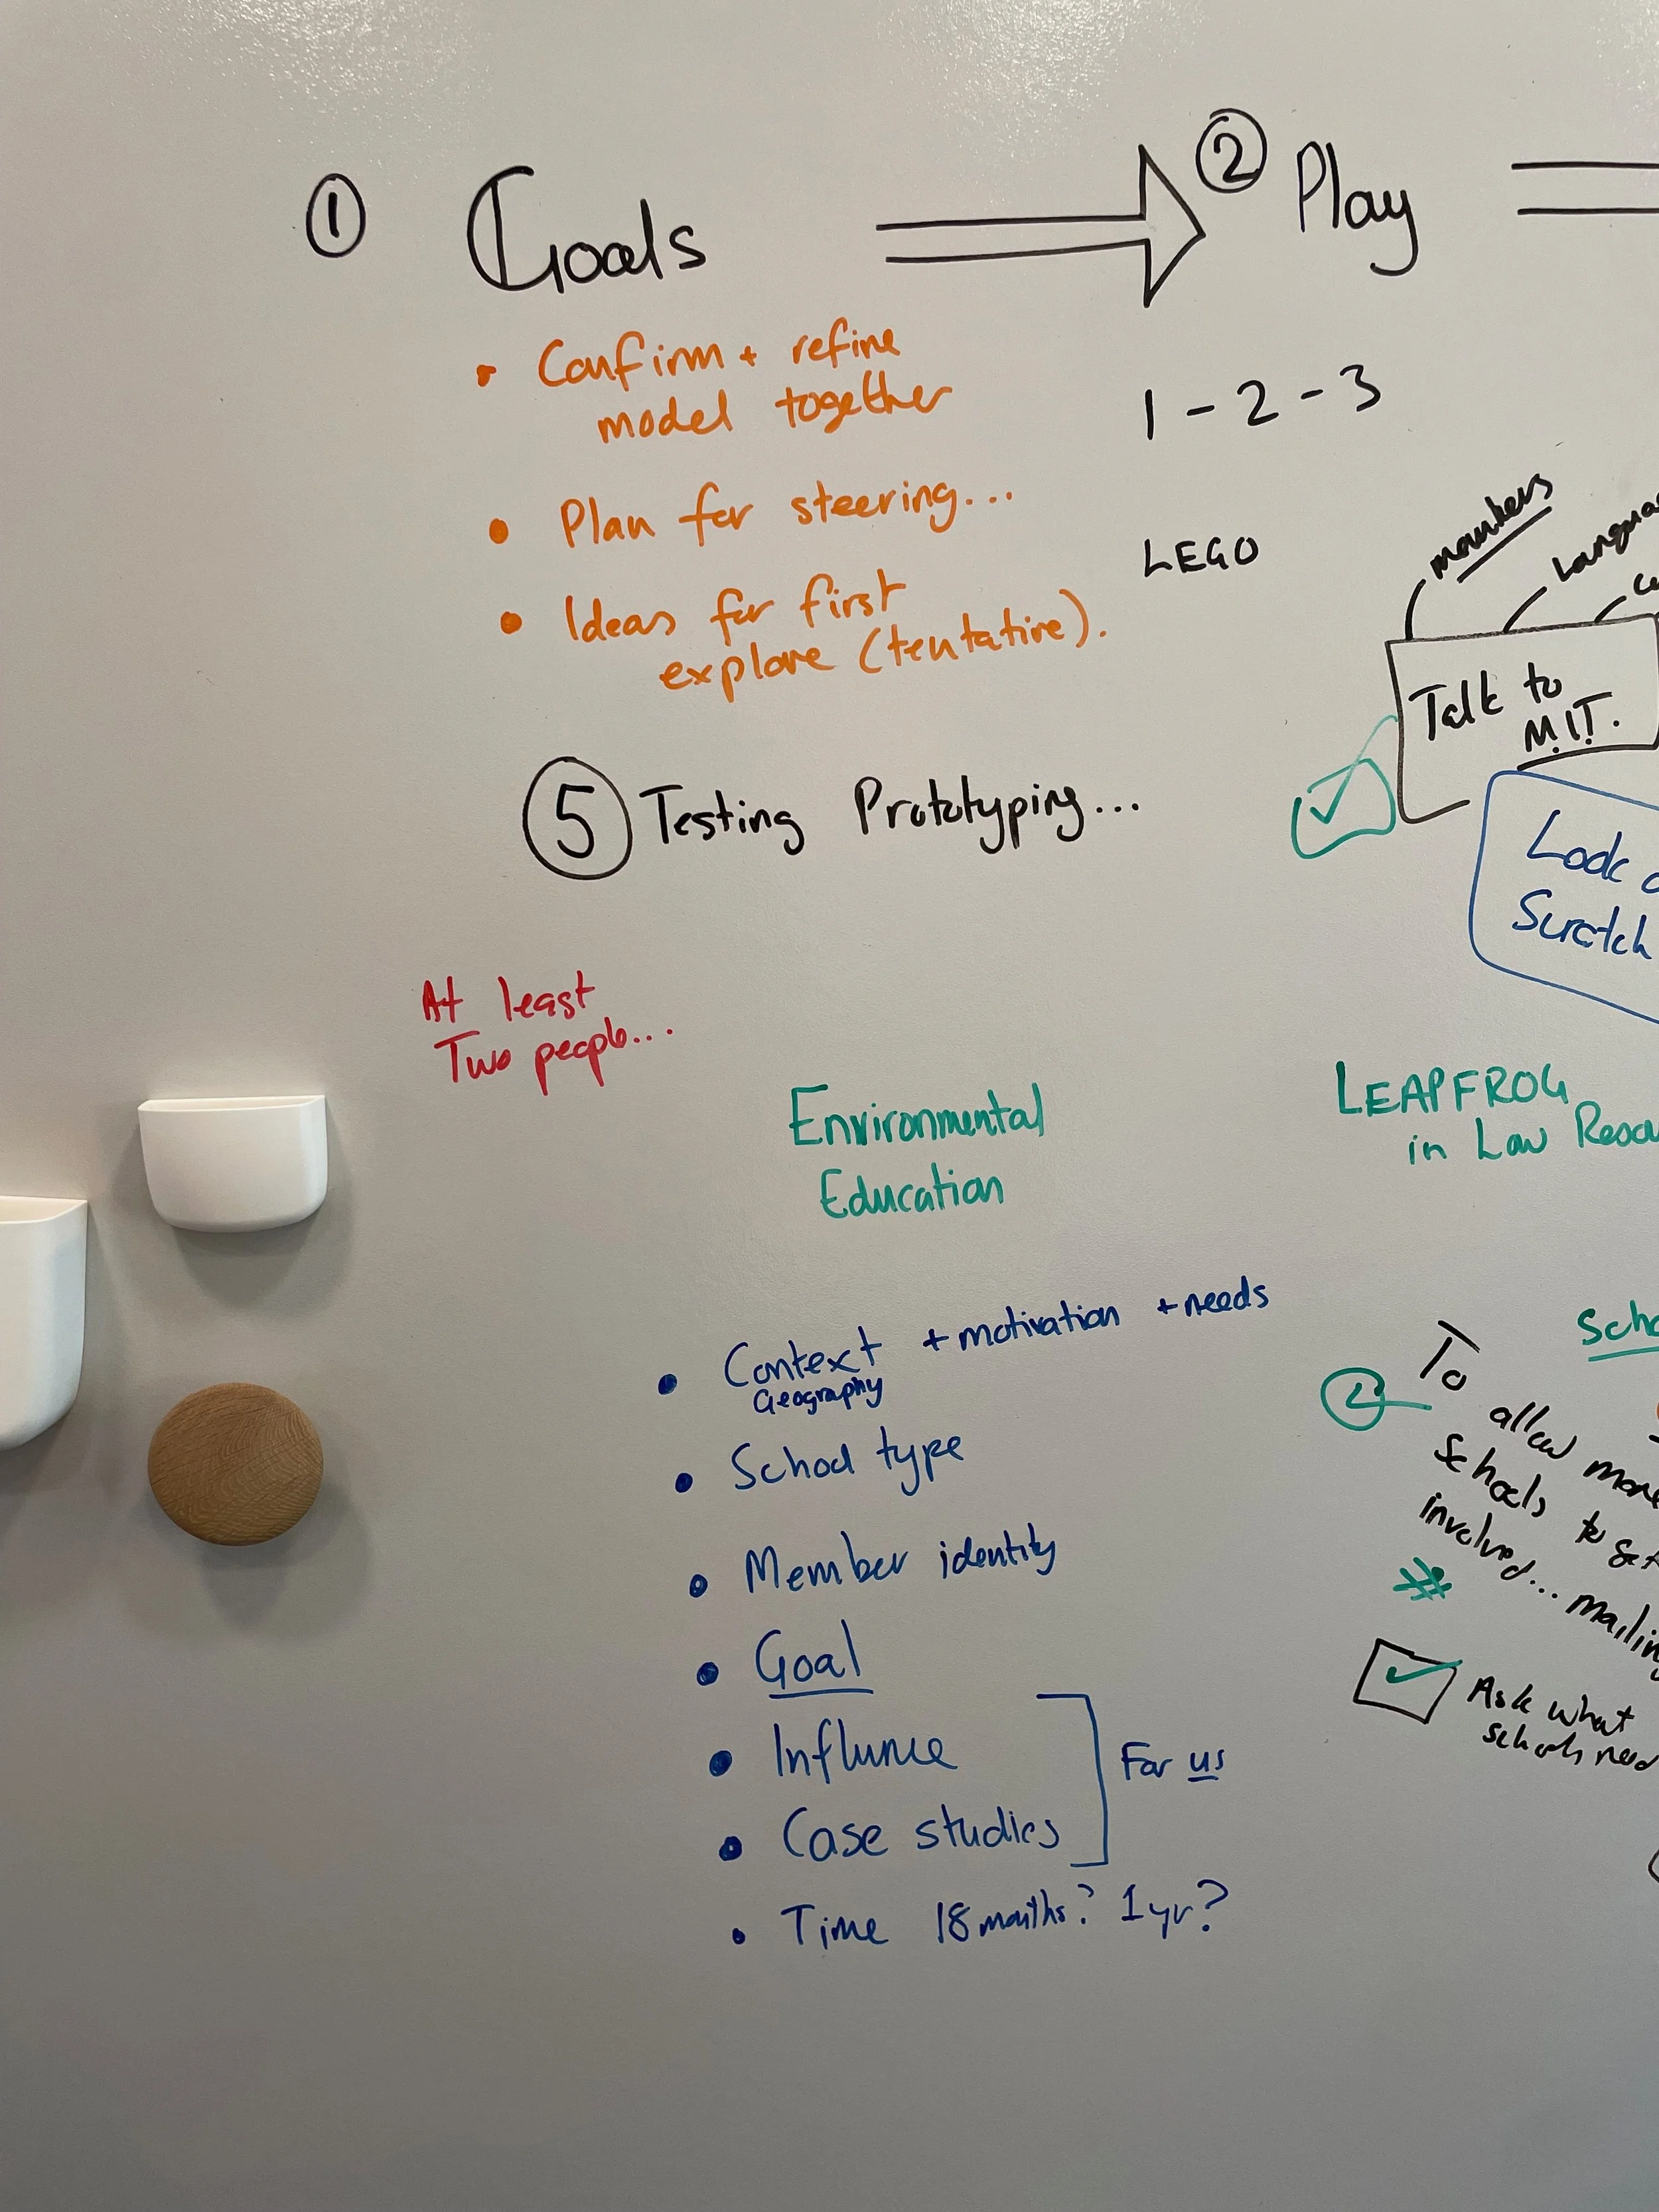 ① Goals
② Play
• Confirm + refine
model together
• Plan for steering...
• Ideas for first
explore (tentative).
1 - 2 - 3
LEGO
members
Talk to
M.I.T.
⑤ Testing Prototyping...
Look
Scratch
At least
Two people...
Environmental
Education
LEAPFROG
in Low
• Context + motivation + needs
Geography
• School type
• Member identity
• Goal
• Influnce
• Case studies
For us
• Time 18 months? 1 yr?
② To
allow more
schools to get
involved... mailing
Ask what
schools need